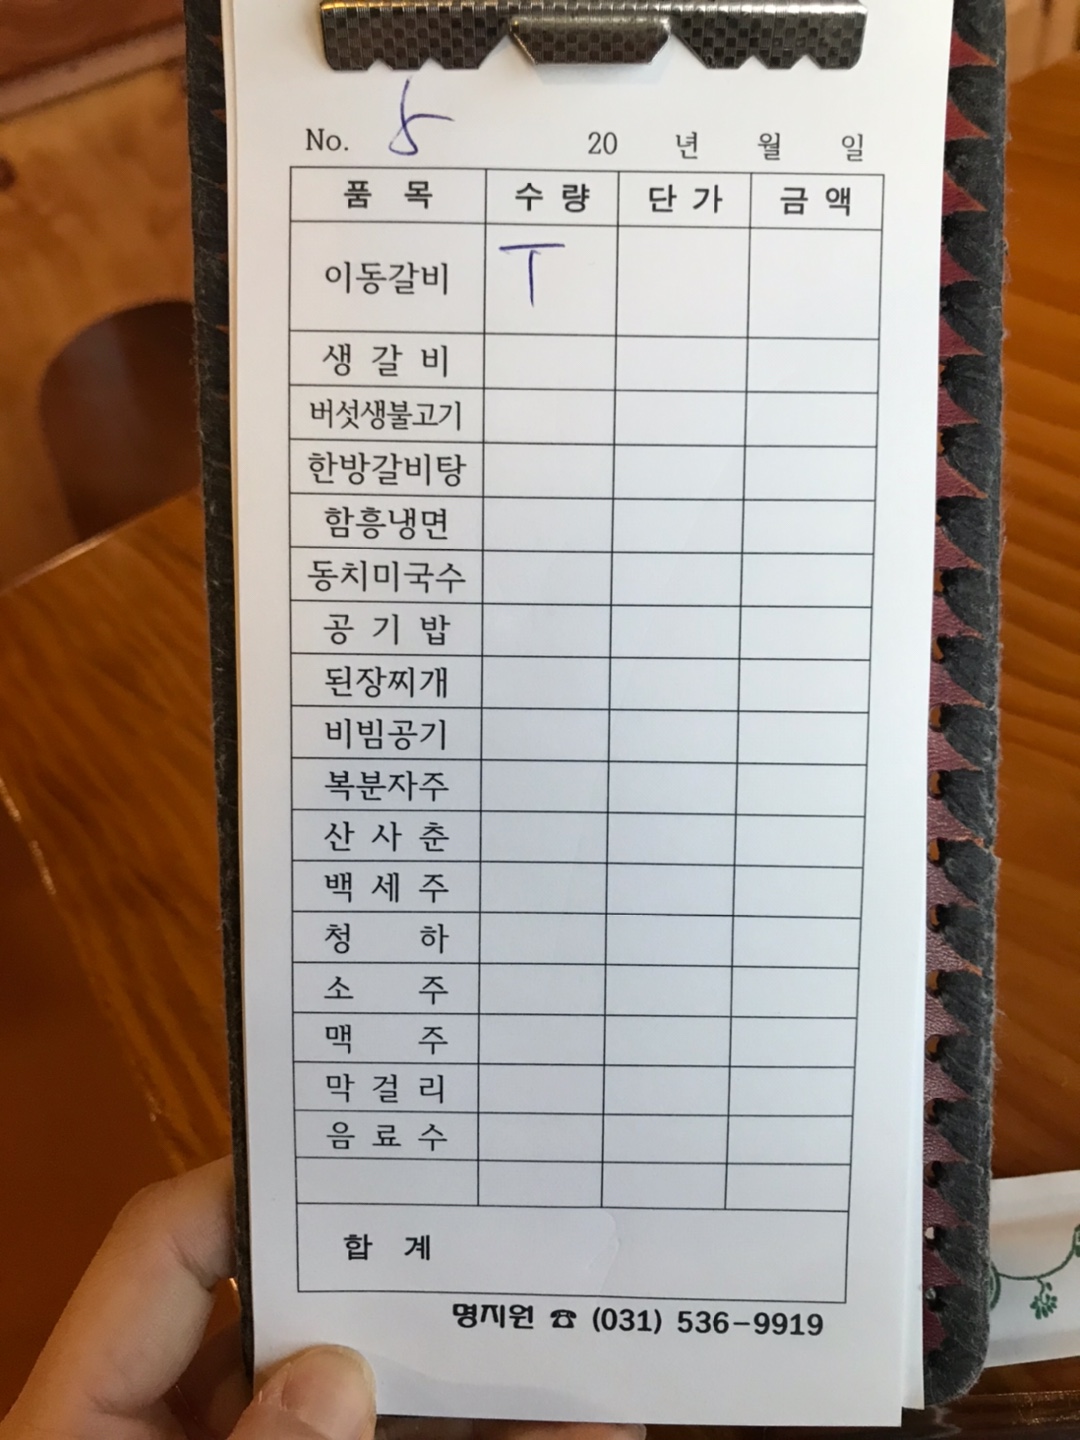 No. 5 20 년 월 일
품 목 수 량 단 가 금 액
이동갈비 T
생 갈 비
버섯생불고기
한방갈비탕
함흥냉면
동치미국수
공 기 밥
된장찌개
비빔공기
복분자주
산 사 춘
백 세 주
청 하
소 주
맥 주
막 걸 리
음 료 수
합 계
명지원 ☎ (031) 536-9919